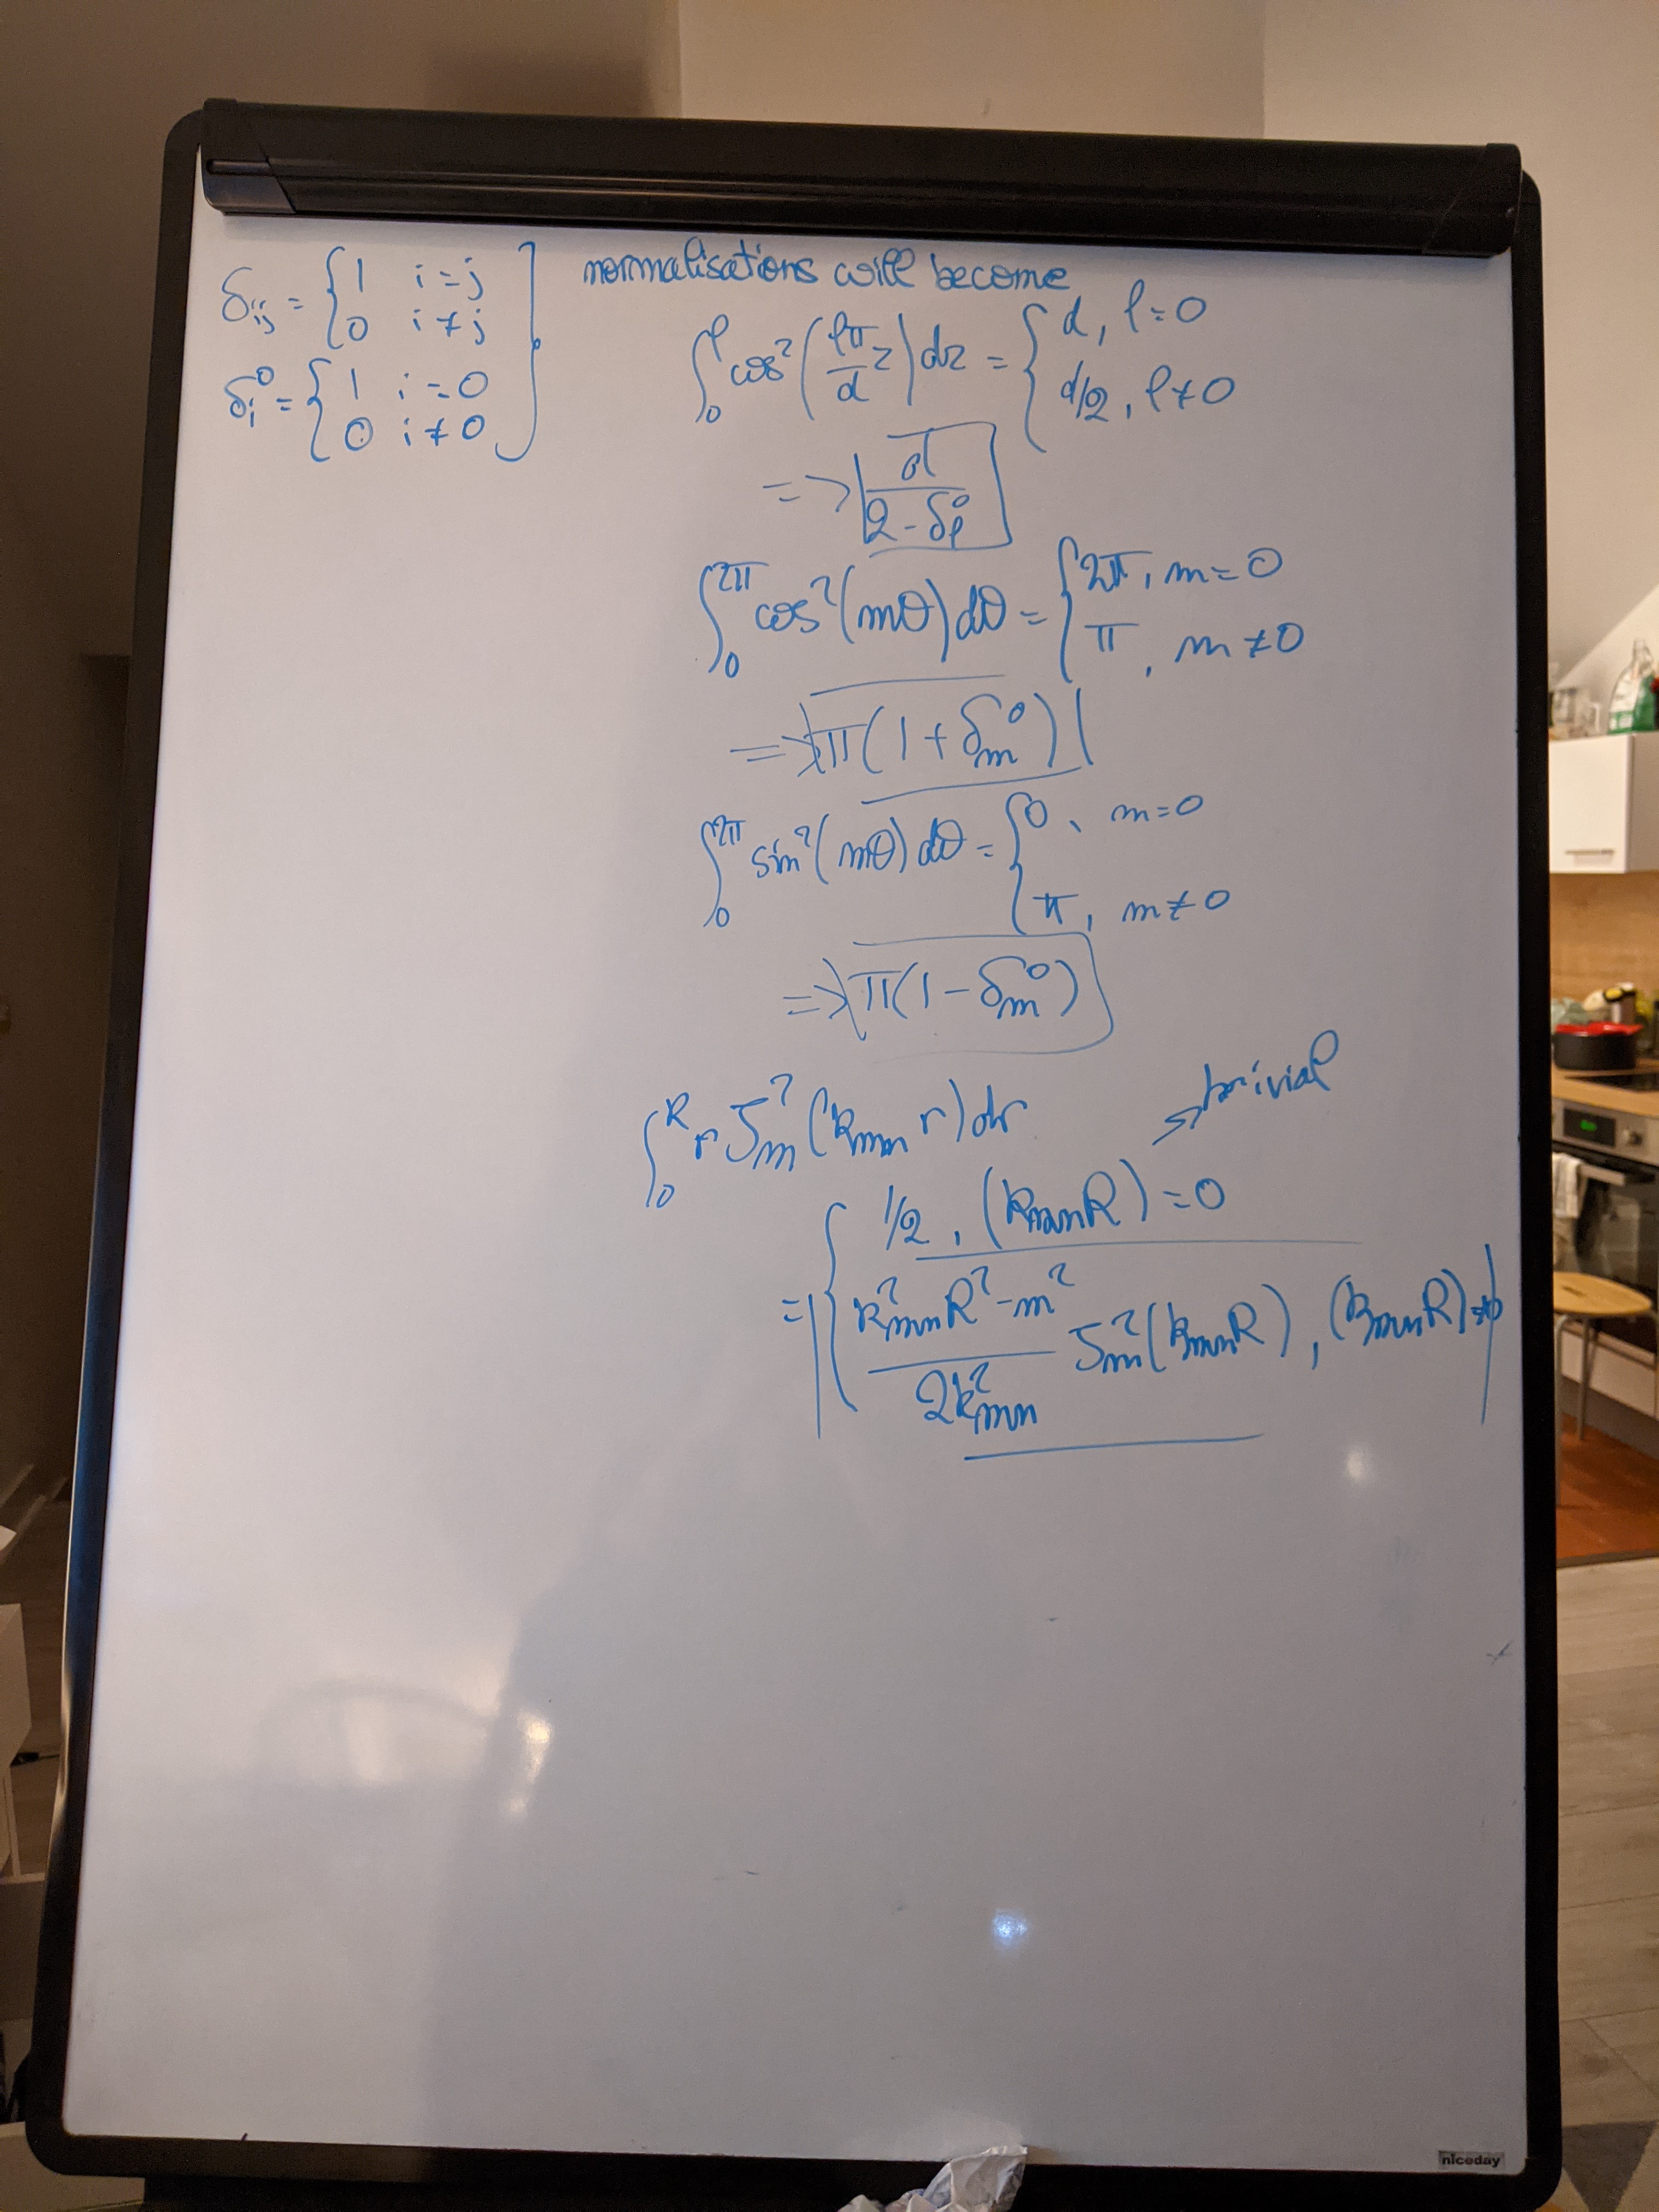 δij = { 1 i = j
0 i ≠ j
δi⁰ = { 1 i = 0
0 i ≠ 0
normalisations will become
∫₀^ℓ cos²(ℓπ/d z) dz = { d, ℓ = 0
d/2, ℓ ≠ 0
=> d/(2 - δℓ⁰)
∫₀^2π cos²(mθ) dθ = { 2π, m = 0
π, m ≠ 0
=> π(1 + δm⁰)
∫₀^2π sin²(mθ) dθ = { 0, m = 0
π, m ≠ 0
=> π(1 - δm⁰)
∫₀^R r Jm²(kmn r) dr
→ trivial
= { 1/2, (kmnR) = 0
(k²mnR² - m²)/(2k²mn) Jm²(kmnR), (kmnR) ≠ 0
niceday